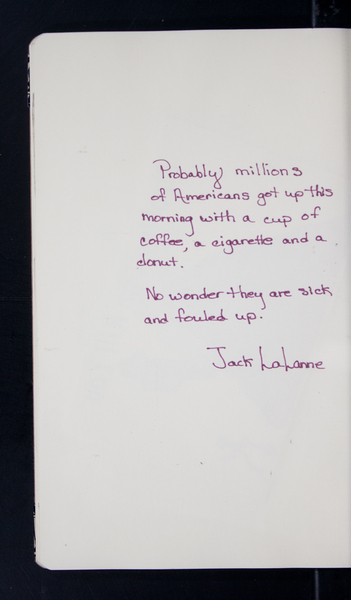 Probably millions
of Americans got up this
morning with a cup of
coffee, a cigarette and a
donut.
No wonder they are sick
and fouled up.
Jack LaLanne